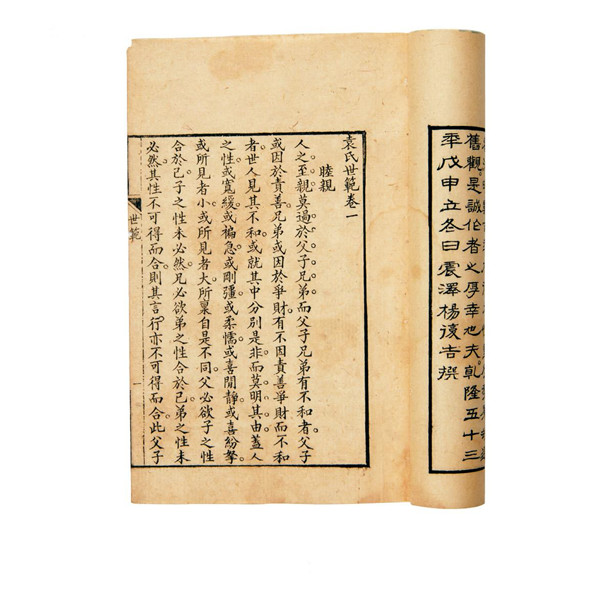 舊觀是誠伦者之厚幸也夫乾隆五十三
年戊申立冬日震澤楊復吉撰
袁氏世範卷一
睦親
人之至親。莫過於父子兄弟。而父子兄弟有不和者。父子
或因於責善。兄弟或因於爭財。有不因責善爭財而不和
者。世人見其不和。或就其中分別是非。而莫明其由。蓋人
之性。或寬緩。或褊急。或剛彊。或柔懦。或喜閒靜。或喜紛拏。
或所見者小。或所見者大。所稟自是不同。父必欲子之性
合於己。子之性未必然。兄必欲弟之性合於己。弟之性未
必然。其性不可得而合。則其言行亦不可得而合。此父子
世範
一